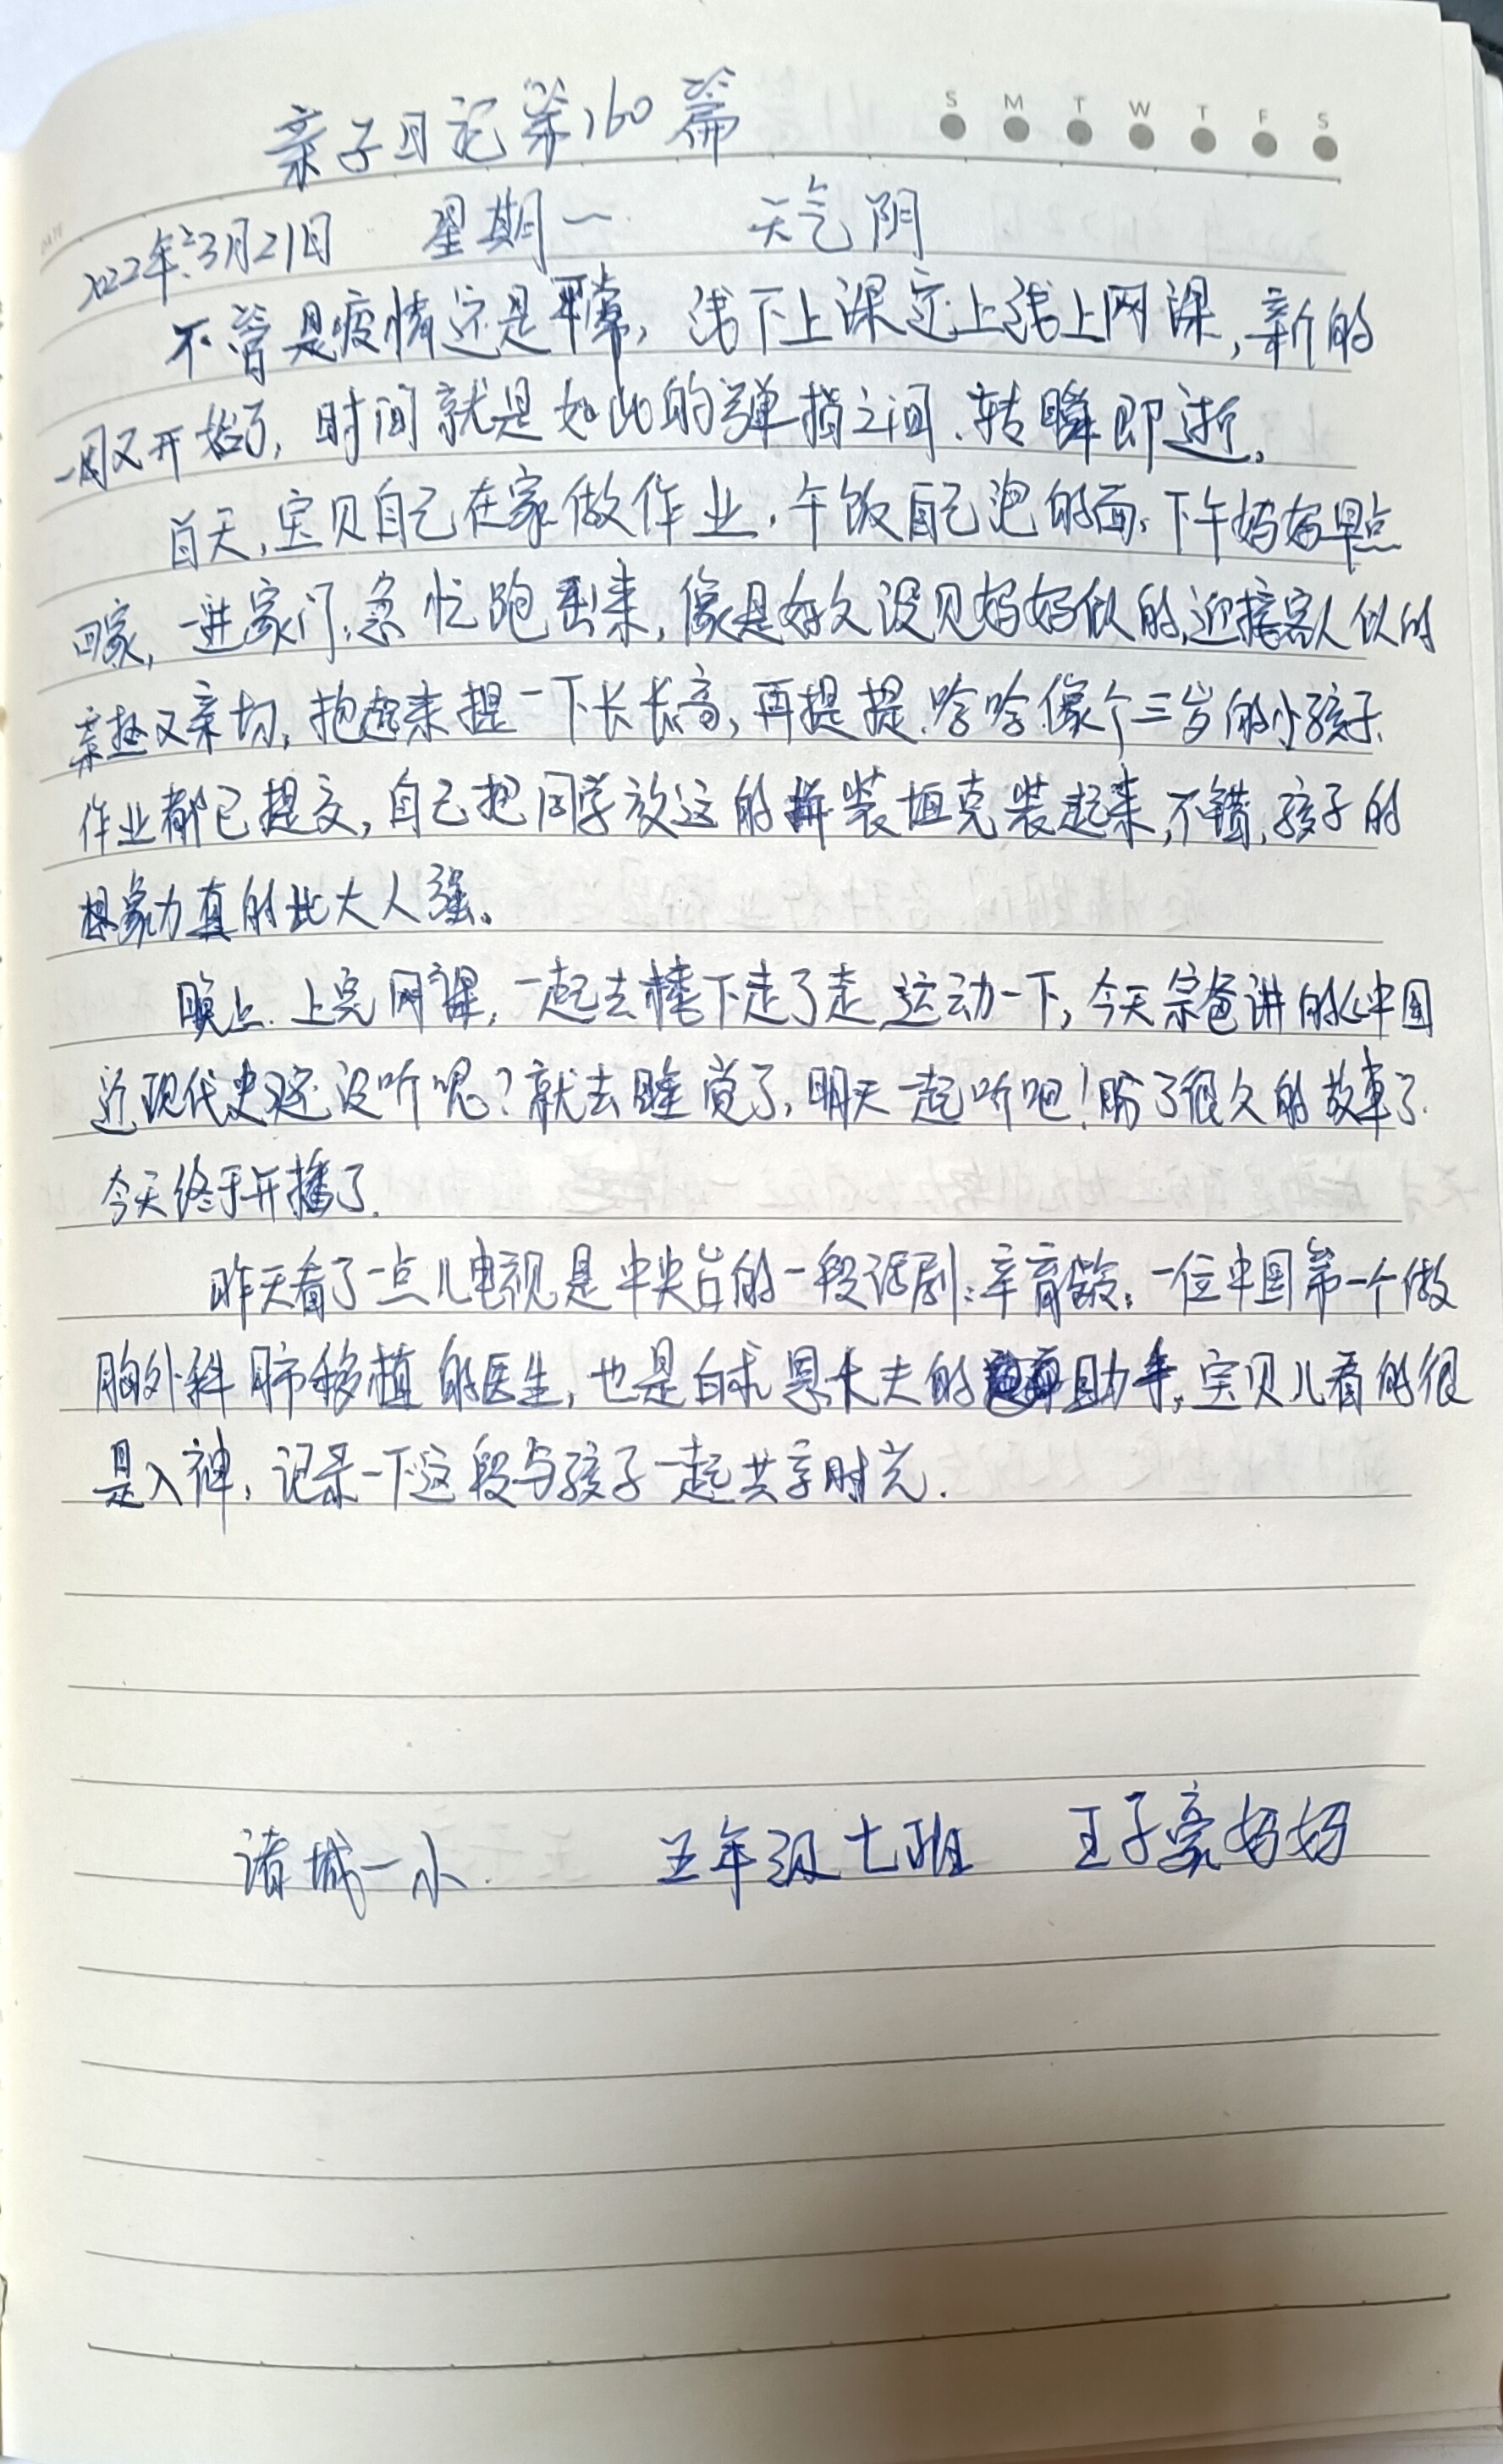 亲子日记第160篇
S M T W T F S
DATE
2022年3月21日 星期一 天气阴
不管是疫情还是平常,线下上课定上线上网课,新的
一周又开始了,时间就是如此的弹指之间、转瞬即逝。
白天,宝贝自己在家做作业,午饭自己泡的面,下午妈妈早点
回家,一进家门,急忙跑出来,像是好久没见妈妈似的,迎接客人似的
亲热又亲切,抱起来提一下长长高,再提提,哈哈,像个三岁的小孩子.
作业都已提交,自己把同学放这的拼装坦克装起来,不错,孩子的
想象力真的比大人强。
晚上.上完网课,一起去楼下走了走,运动一下,今天宗爸讲的《中国
近现代史》还没听呢?就去睡觉了,明天一起听吧!盼了很久的故事了.
今天终于开播了.
昨天看了一点儿电视是中央台的一段话剧:辛育龄,一位中国第一个做
胸外科肺移植的医生,也是白求恩大夫的助手,宝贝儿看的很
是入神,记录一下这段与孩子一起共享时光.
诸城一小. 五年级七班 王子豪妈妈